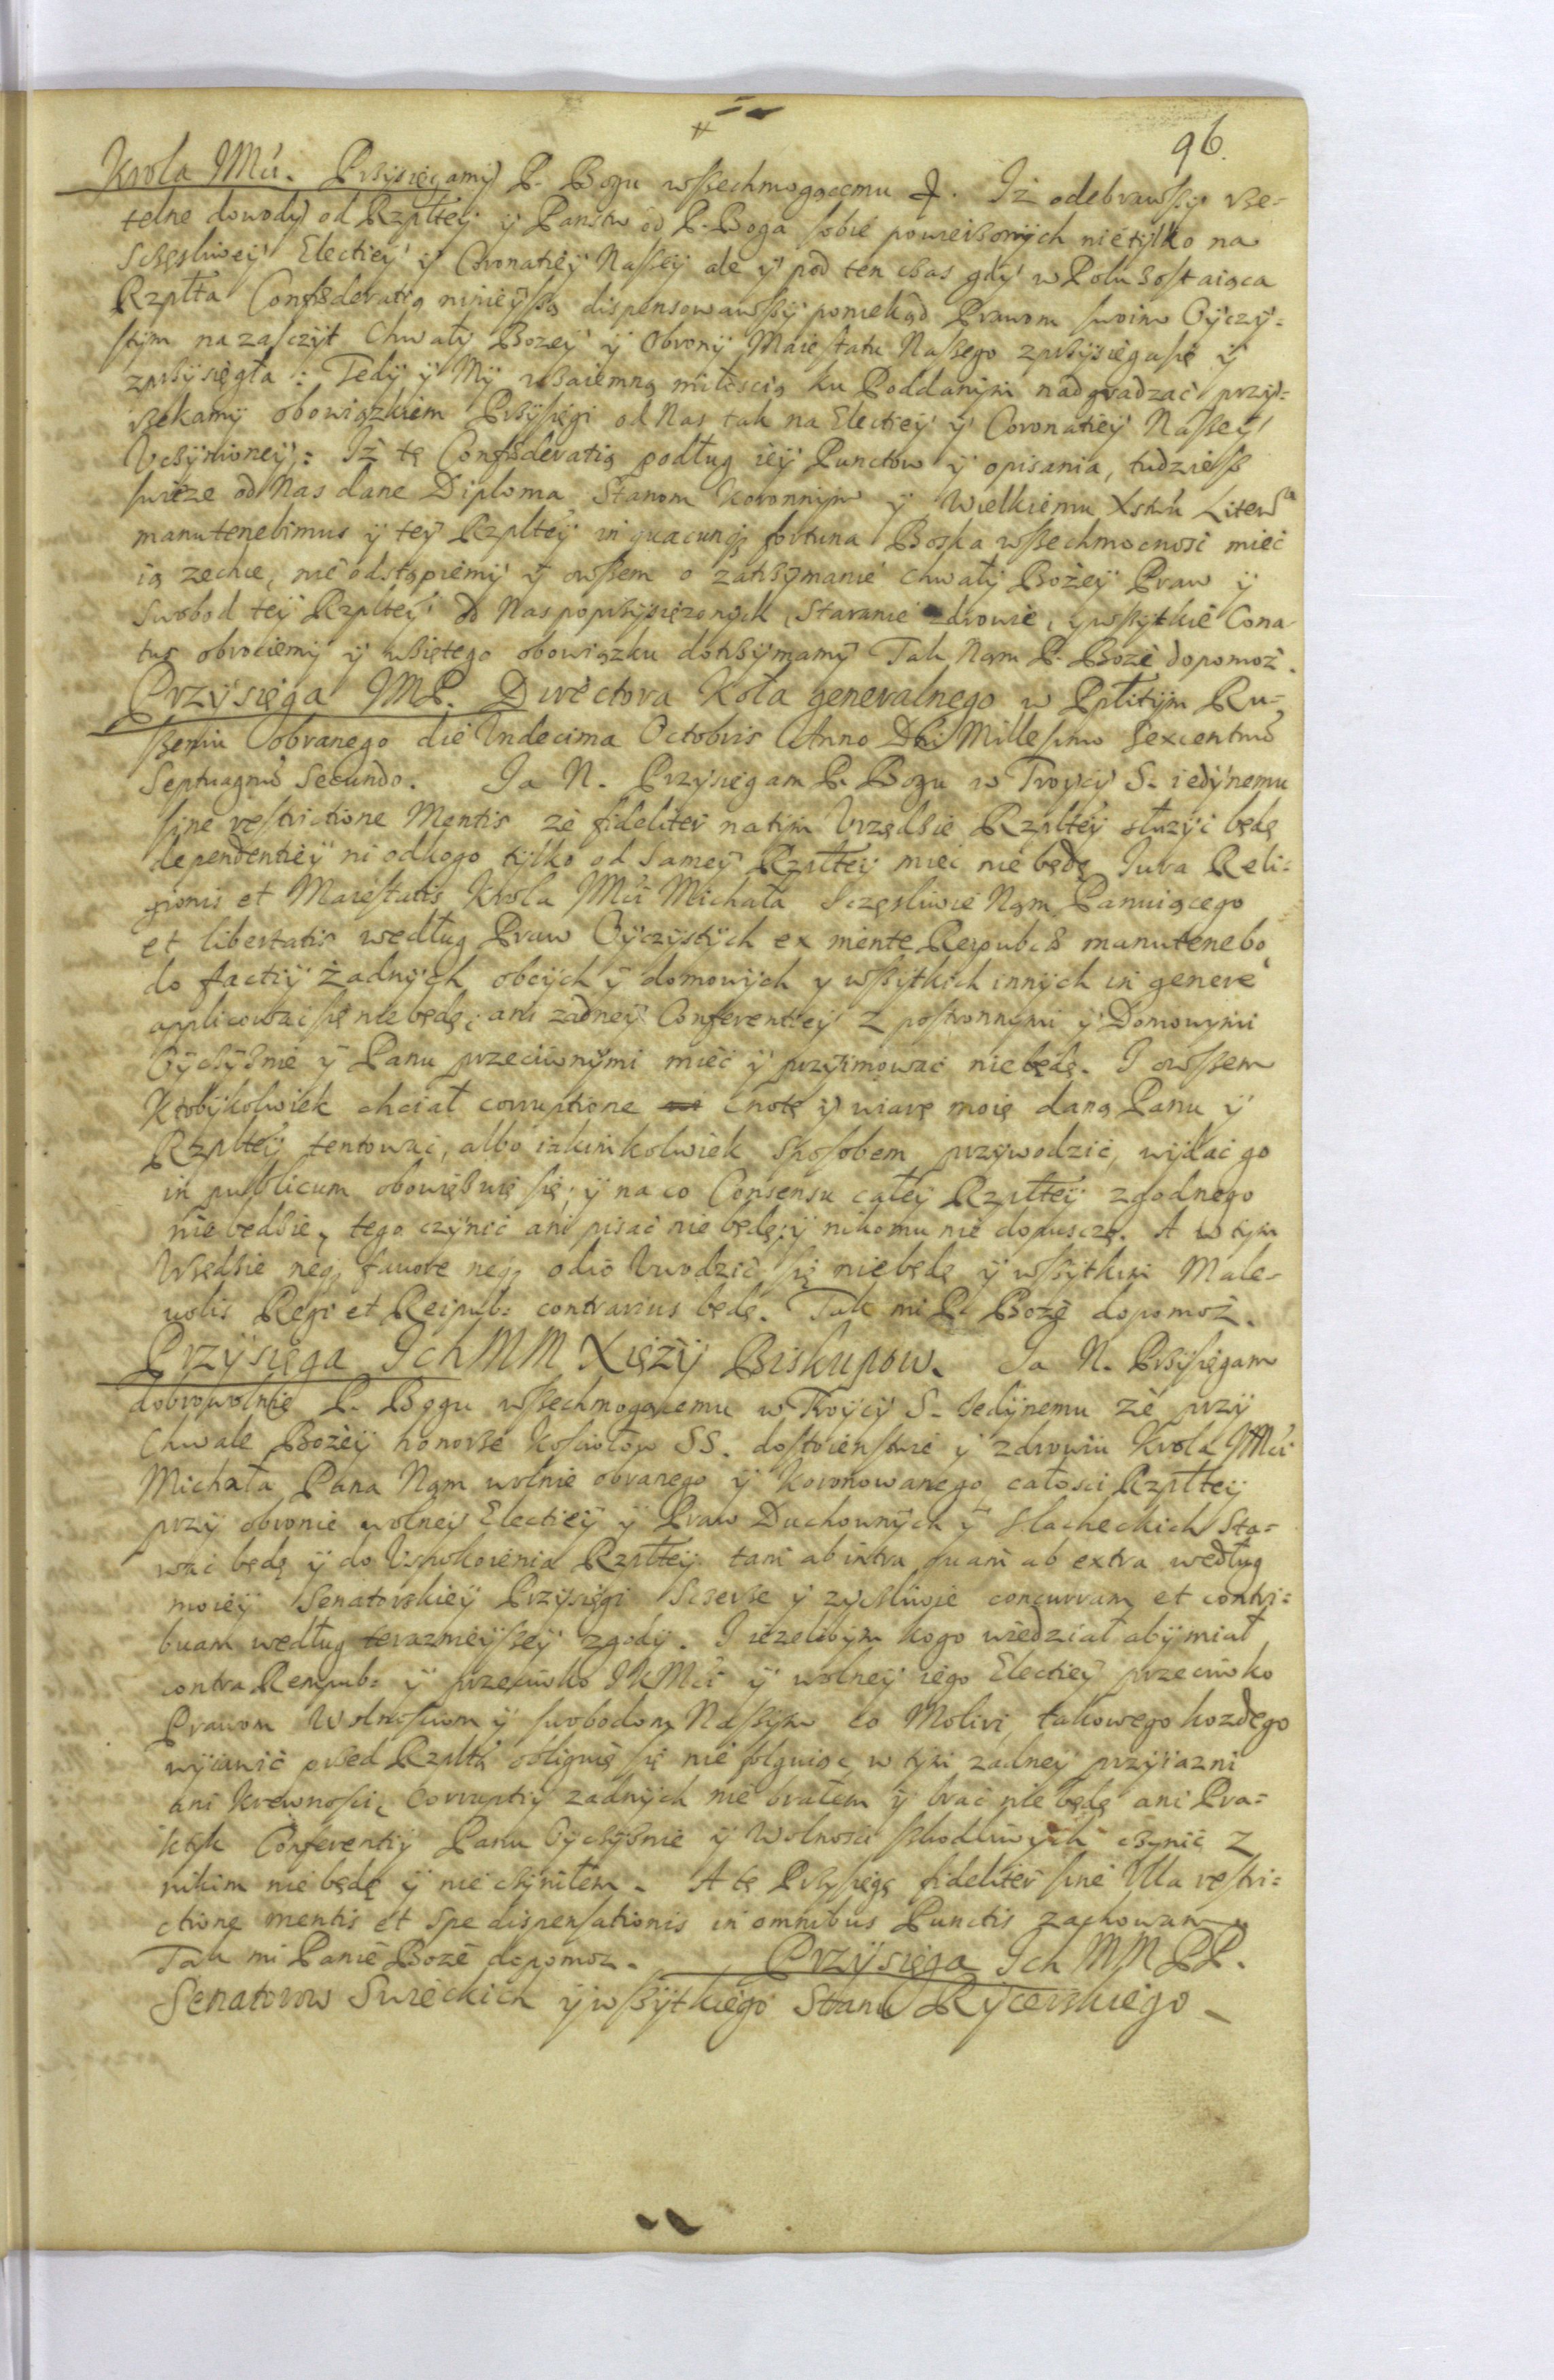 96.
Krola JMci. Przysięgamy P. Bogu wszechmogącemu &. Iż odebrawszy rze-
telne dowody od Rzpltey y Państw od P. Boga sobie powierzonych nie tylko na
Sczęsliwey Electiey y Coronatiey Naszey ale y pod ten czas gdy w Polu zostaiąca
Rzplta Confoederatią ninieyszą dispensowawszy poniekąd Prawom swoim Oyczy-
stym na zasczyt Chwały Bozey y Obrony Maiestatu Naszego zprzysięga się y
zprzysięgła: Tedy y My wzaiemną miłoscią ku Poddanym nadgradzać przy-
rzekamy obowiązkiem Przysięgi od Nas tak na Electiey y Coronatiey Naszey
Vczynioney: Iż tę Confoederatią podług iey Punctow y opisania, tudziesz
swieze od Nas dane Diploma Stanom Koronnym y Wielkiemu Xstwu Litew
manutenebimus y tey Rzpltey in quacunq fortuna Boska wszechmocnosć mieć
ią zechce, nie odstąpiemy y owszem o zatrzymanie chwały Bożey Praw y
Swobod tey Rzpltey od Nas poprzysięzonych Staranie zdrowie, y wszytkie Cona-
tus obrociemy y wziętego obowiązku dotrzymamy Tak Nam P. Boze dopomoż.
Przysięga JMP. Directora Koła generalnego w Pplitym Ru-
szeniu obranego die Vndecima Octobris Anno Dni Millesimo Sexcentmo
Septuagmo Secundo. Ja N. Przysięgam P. Bogu w Troycy S. iedynemu
sine restrictione Mentis że fideliter na tym Vrzędzie Rzpltey słuzyć będę
dependentiey ni od kogo tylko od Samey Rzpltey mieć nie będę Iura Reli-
gionis et Maiestatis Krola JMci Michała Sczęsliwie Nam Panuiącego
et libertatis według Praw Oyczystych ex mente Reipubcae manutenebo,
do factiy żadnych obcych y domowych y wszytkich innych in genere
applicować się nie będę, ani żadney Conferentiey z postronnymi y Domowymi
Oyczyznie y Panu przeciwnymi mieć y przyimować nie będę. I owszem
Ktobykolwiek chciał corruptione cnotę y wiarę moię daną Panu y
Rzpltey tentować, albo iakimkolwiek sposobem przywodzić, wydać go
in publicum obowięzuię się, y na co Consensu całey Rzpltey zgodnego
nie będzie, tego czynić ani pisać nie będę, y nikomu nie dopusczę. A w tym
Vrzędzie neq fauore neq odio Vwodzić się nie będę y wszytkim Male-
uolis Regi et Reipub: contrarius będę. Tak mi P. Boże dopomoż.
Przysięga Ich MM Xięży Biskupow. Ja N. Przysięgam
dobrowolnie P. Bogu wszechmogącemu w Troycy S. Iedynemu że przy
Chwale Bożey honorze Kosciołow SS. dostoienstwie y zdrowiu Krola JMci
Michała Pana Nam wolnie obranego y Koronowanego całosci Rzpltey
przy obronie wolney Electiey y Praw Duchownych y Slacheckich Sta-
wać będę y do Vspokoienia Rzpltey tam ab intra quam ab extra według
moiey Senatorskiey Przysięgi Sczerze y zyczliwie concurram et contri-
buam według terazniejszey zgody. I iezelibym kogo wiedział aby miał
contra Rempub: y przeciwko JKMci y wolney iego Electiey przeciwko
Prawom Wolnosciom y swobodom Naszym co Moliri, takowego kozdego
wyiawić przed Rzpltą obliguię się nie folguiąc w tym żadney przyiazni
ani Krewnosci, Corruptiy zadnych nie brałem y brać nie będę ani Pra-
ktyk Conferentiy Panu Oyczyznie y Wolnosci szkodliwych czynić z
nikim nie będę y nie czyniłem. A tę Przysięgę fideliter sine Vlla restri-
ctione mentis et Spe dispensationis in omnibus Punctis zachowam
Tak mi Panie Boże dopomoz. Przysięga Ich MM PP.
Senatorow Swieckich y wszytkiego Stanu Rycerskiego